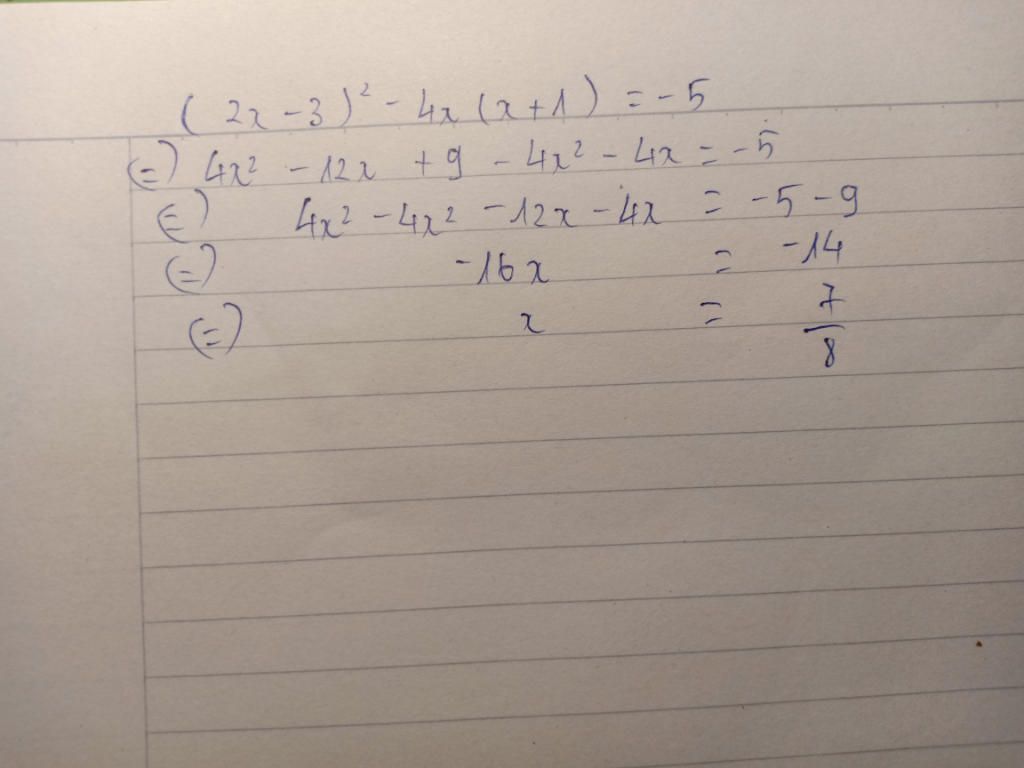 (2x - 3)² - 4x (x + 1) = - 5
(=) 4x² - 12x + 9 - 4x² - 4x = - 5
(=) 4x² - 4x² - 12x - 4x = - 5 - 9
(=) - 16x = - 14
(=) x = 7/8